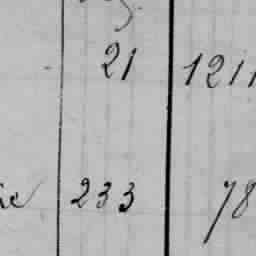 21 1211
233 78